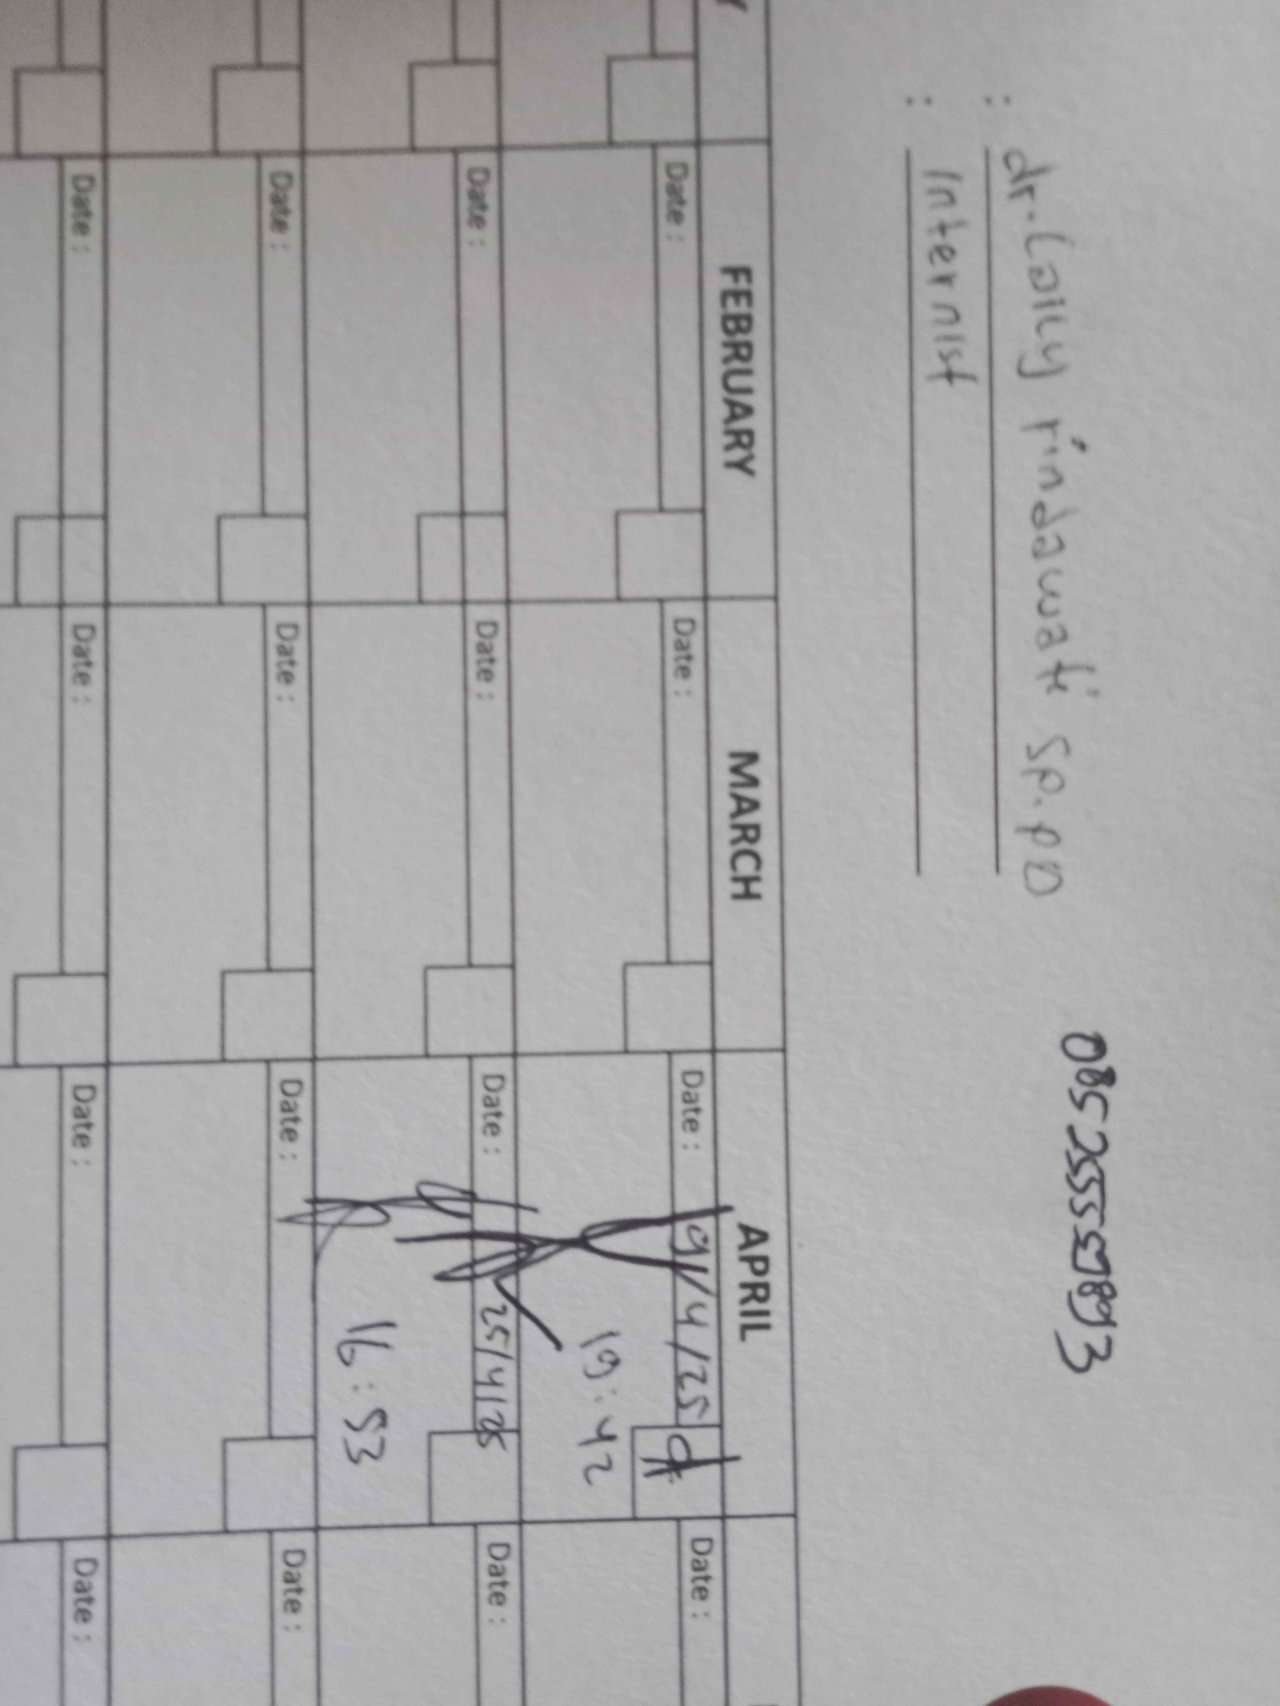 085255557893
: dr. Laily rindawati sp.PD
: Internist
FEBRUARY MARCH APRIL
Date : Date : Date : 9/4/25 Date :
19:42
Date : Date : Date : 25/4/25 Date :
16:53
Date : Date : Date : Date :
Date : Date : Date : Date :